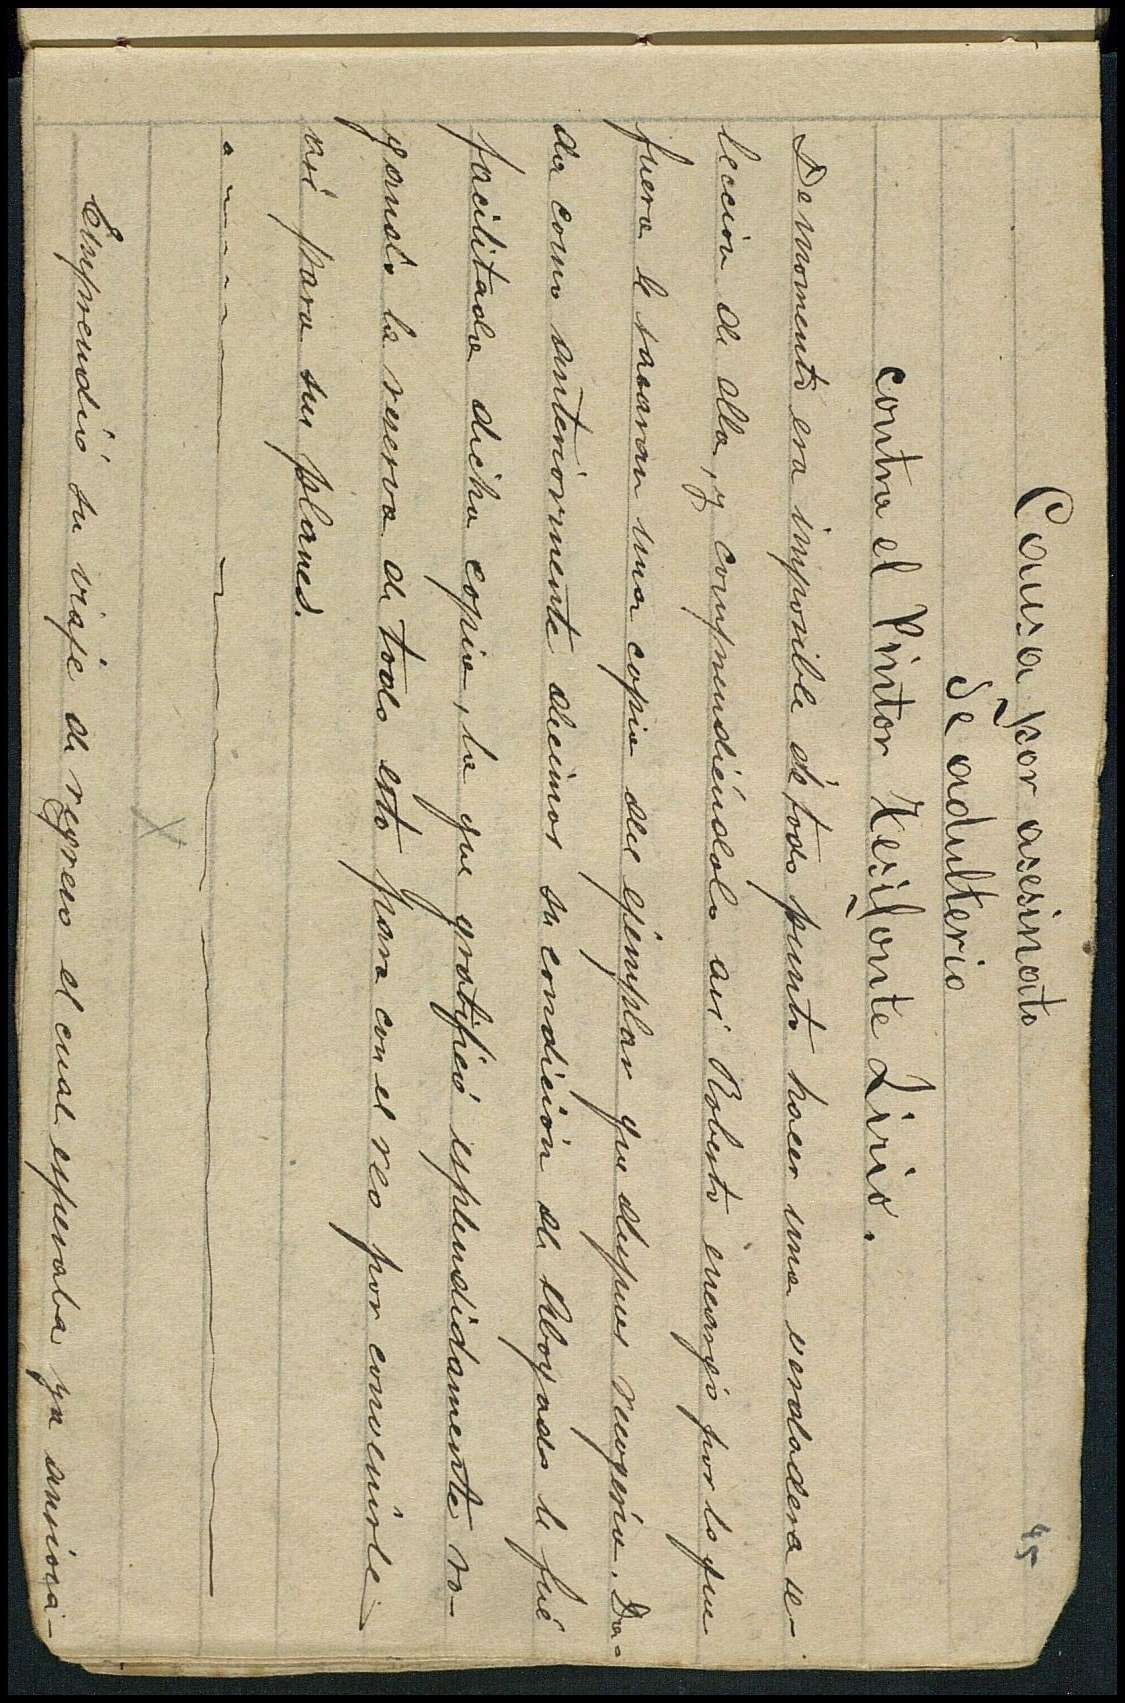 45
Causa por asesinato
de adulterio
contra el Pintor Kesifonte Lirio.
De momento era imposible de todo punto hacer una verdadera se-
leccion de ella, y comprendiéndolo asi Roberto encargó por lo que
fuera le sacaran una copia del ejemplar que despues recogeria. Da-
da como anteriormente decimos su condición de Abogado le fué
facilitada dicha copia, la que gratificó esplendidamente ro-
gando la reserva de todo esto para con el reo por convenirle
asi para sus planes.
X
Emprendió su viaje de regreso el cual esperaba ya ansiosa-